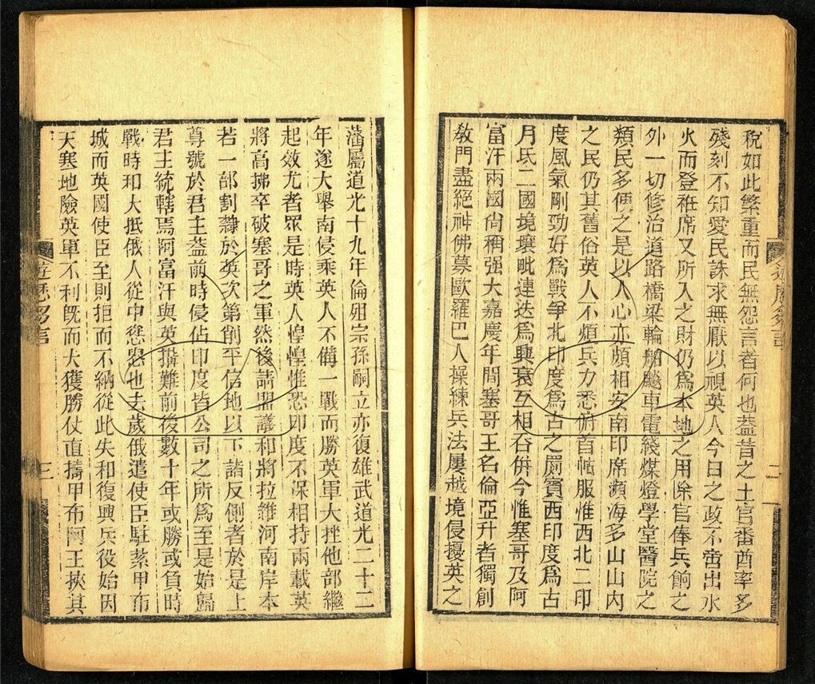 稅如此繁重而民無怨言者何也葢昔之土官番酋率多
殘刻不知愛民誅求無厭以視英人今日之政不啻出水
火而登袵席又所入之財仍爲本地之用除官俸兵餉之
外一切修治道路橋梁輪船飈車電綫煤燈學堂醫院之
類民多便之是以人心亦頗相安南印度瀕海多山山內
之民仍其舊俗英人不煩兵力悉俯首帖服惟西北二印
度風氣剛勁好爲戰爭北印度爲古之罽賓西印度爲古
月氐二國境壤毗連迭爲興衰互相吞併今惟塞哥及阿
富汗兩國尙稱强大嘉慶年間塞哥王名倫亞升者獨創
敎門盡絕神佛募歐羅巴人操練兵法屢越境侵擾英之
二
藩屬道光十九年倫殂宗孫嗣立亦復雄武道光二十二
年遂大舉南侵乘英人不備一戰而勝英軍大挫他部繼
起效尤者眾是時英人惶惶惟恐印度不保相持兩載英
將高拂卒破塞哥之軍然後請盟講和將拉維河南岸本
若一部割隷於英次第削平信地以下諸反側者於是上
尊號於君主葢前時侵佔印度皆公司之所爲至是始歸
君主統轄焉阿富汗與英搆難前後數十年或勝或負時
戰時和大抵俄人從中慫恿也去歲俄遣使臣駐紮甲布
城而英國使臣至則拒而不納從此失和復興兵役始因
天寒地險英軍不利旣而大獲勝仗直擣甲布阿王挾其
三